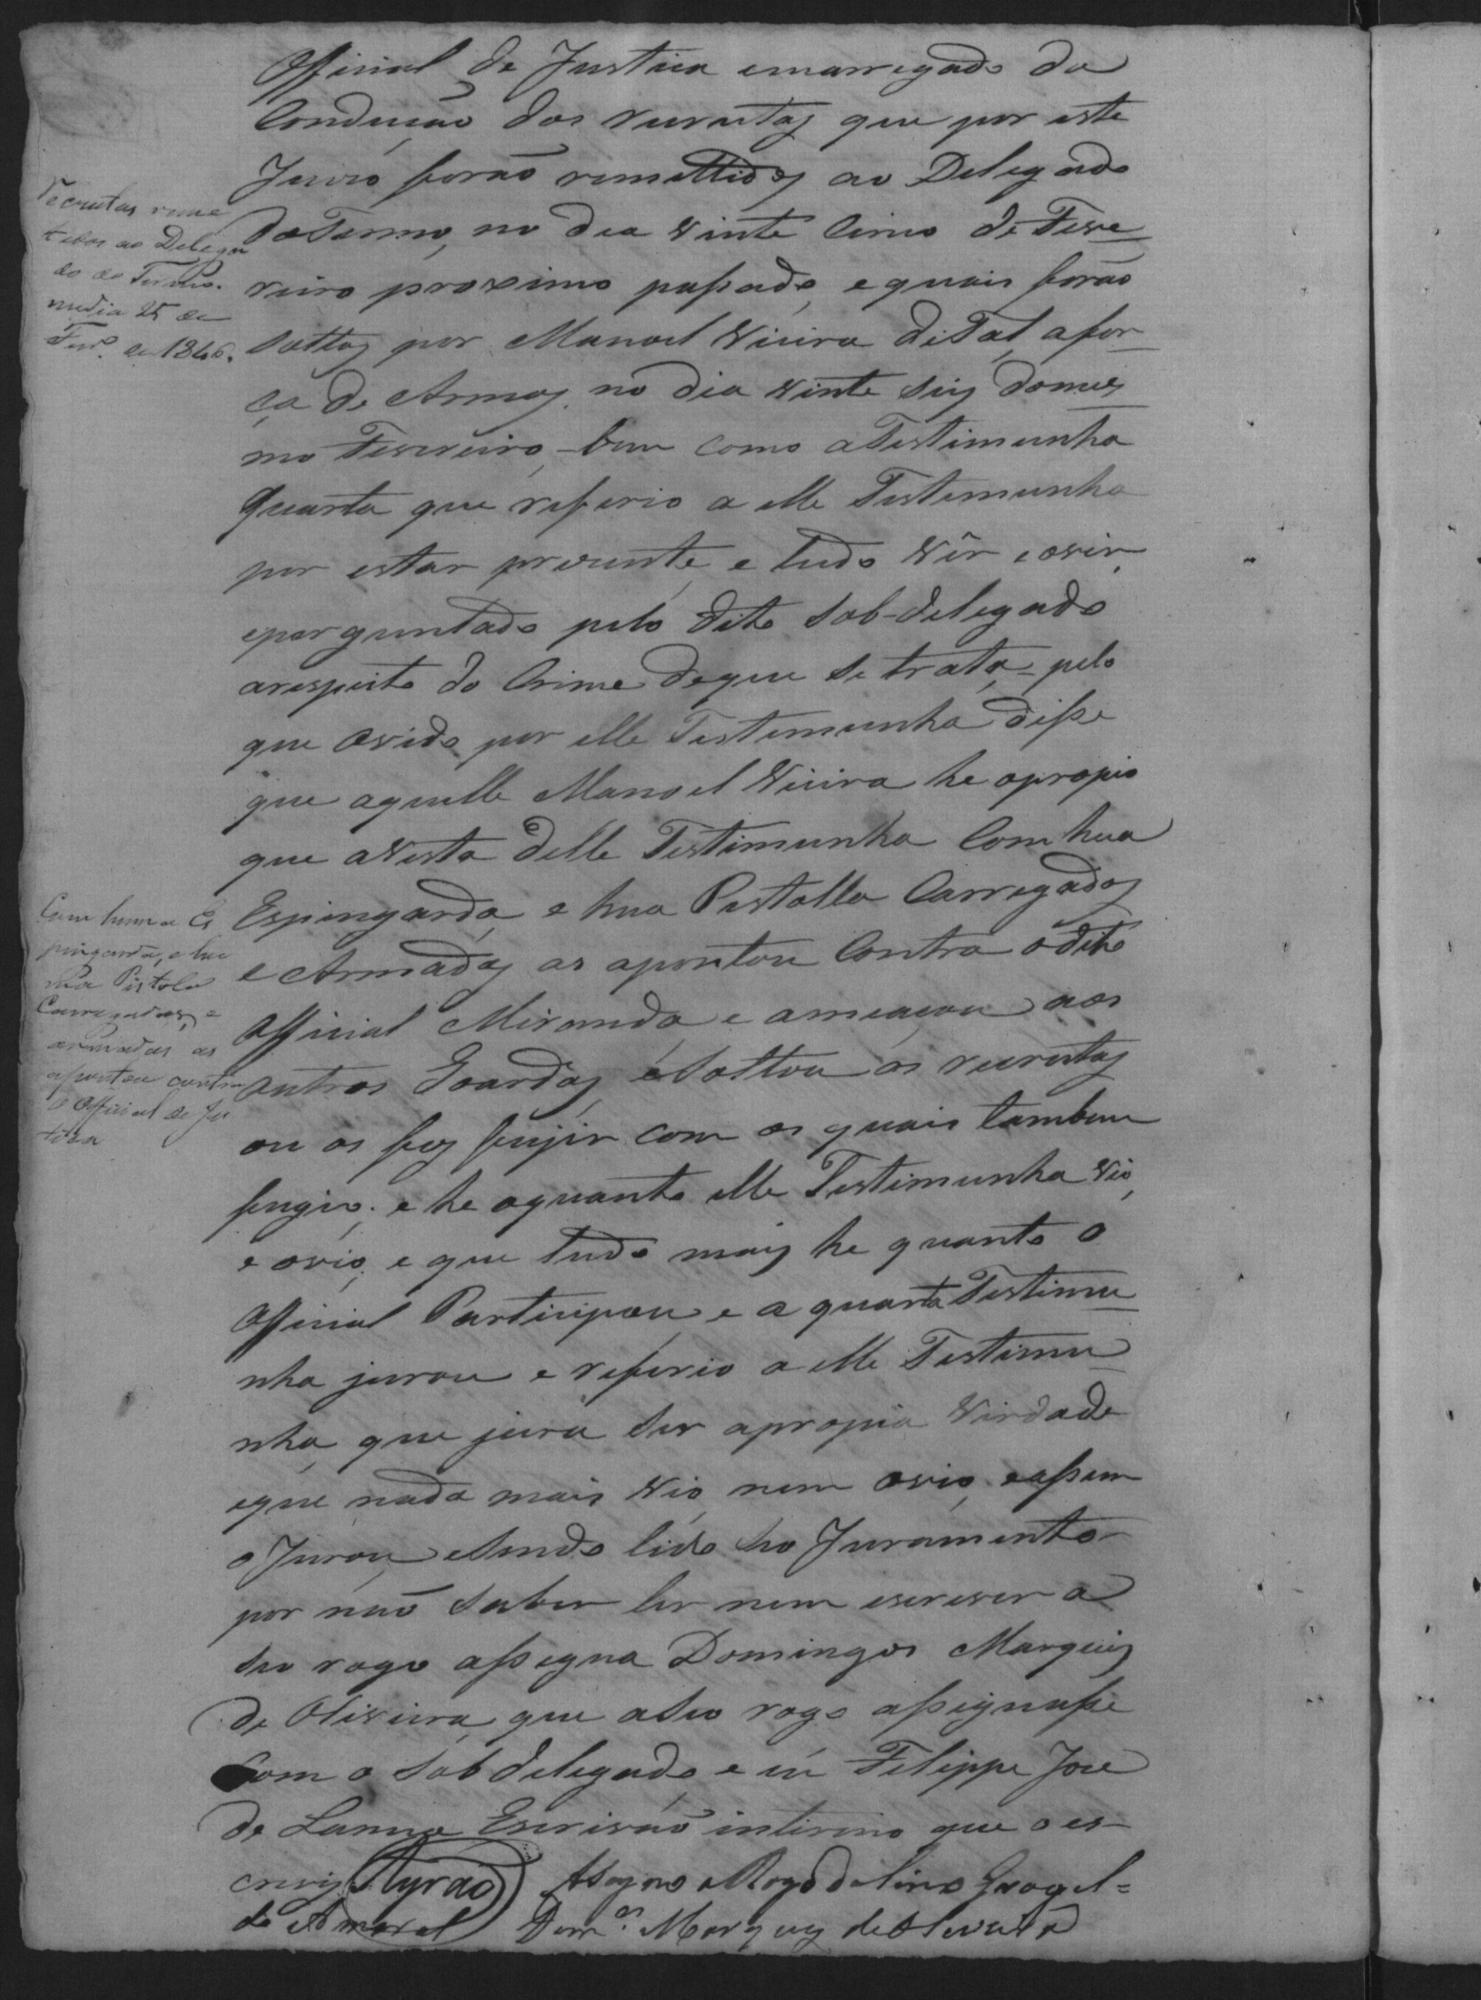 Official de Justica emarregado da
Condução dos recrutas que por este
Juizo forão remettidos ao Delegado
do Termo, no dia vinte Cinco de Feve=
reiro proximo passado, e quais forão
soltos por Manoel Vieira de Tal, a for=
ça de Armas, no dia vinte seis domes=
mo Fevereiro, bem como a Testimunha
quarta que referio a elle Testemunha
por estar prezente, e tudo vêr e ovir,
eperguntado pelo dito Sob-delegado
arespeito do Crime deque se trata, pelo
que ovido por elle Testemunha disse
que aquelle Manoel Vieira he opropio
que avista delle Testimunha Com hua
Espingarda, e hua Pistolla Carregadas
e Armadas as apontou Contra odito
Official Miranda, e ameaçou aos
outros Goardas, e Soltou os recrutas
ou os fez fujir com os quais tambem
fugio, e he oquanto elle Testimunha vio,
e ovio, e que tudo mais he quanto o
Official Participou e a quarta Testimu=
nha jurou e referio a elle Testimu=
nha, que jura ser apropia Verdade
eque nada mais vio, nem ovio, e assim
o Jurou, e sendo lido ho Juramento
por não saber ler nem escrever a
seu rogo assegna Domingos Marques
de Oliveira, que a seu rogo assignasse
Com o Sob delegado e eu Filippe José
de Lanna Escrivão interino que o es=
crevy Ayrão Asigno a Rogo
do Amaral Dom.os Marques de Oliveira
Recrutas reme
tidos ao Delega
do do Termo.
no dia 25 de
Fevr.o de 1846.
Com huma Es
pingarda, e hu
ma Pistola
Carregadas, e
armadas as
apontou contra
o Official de Ju
stiça